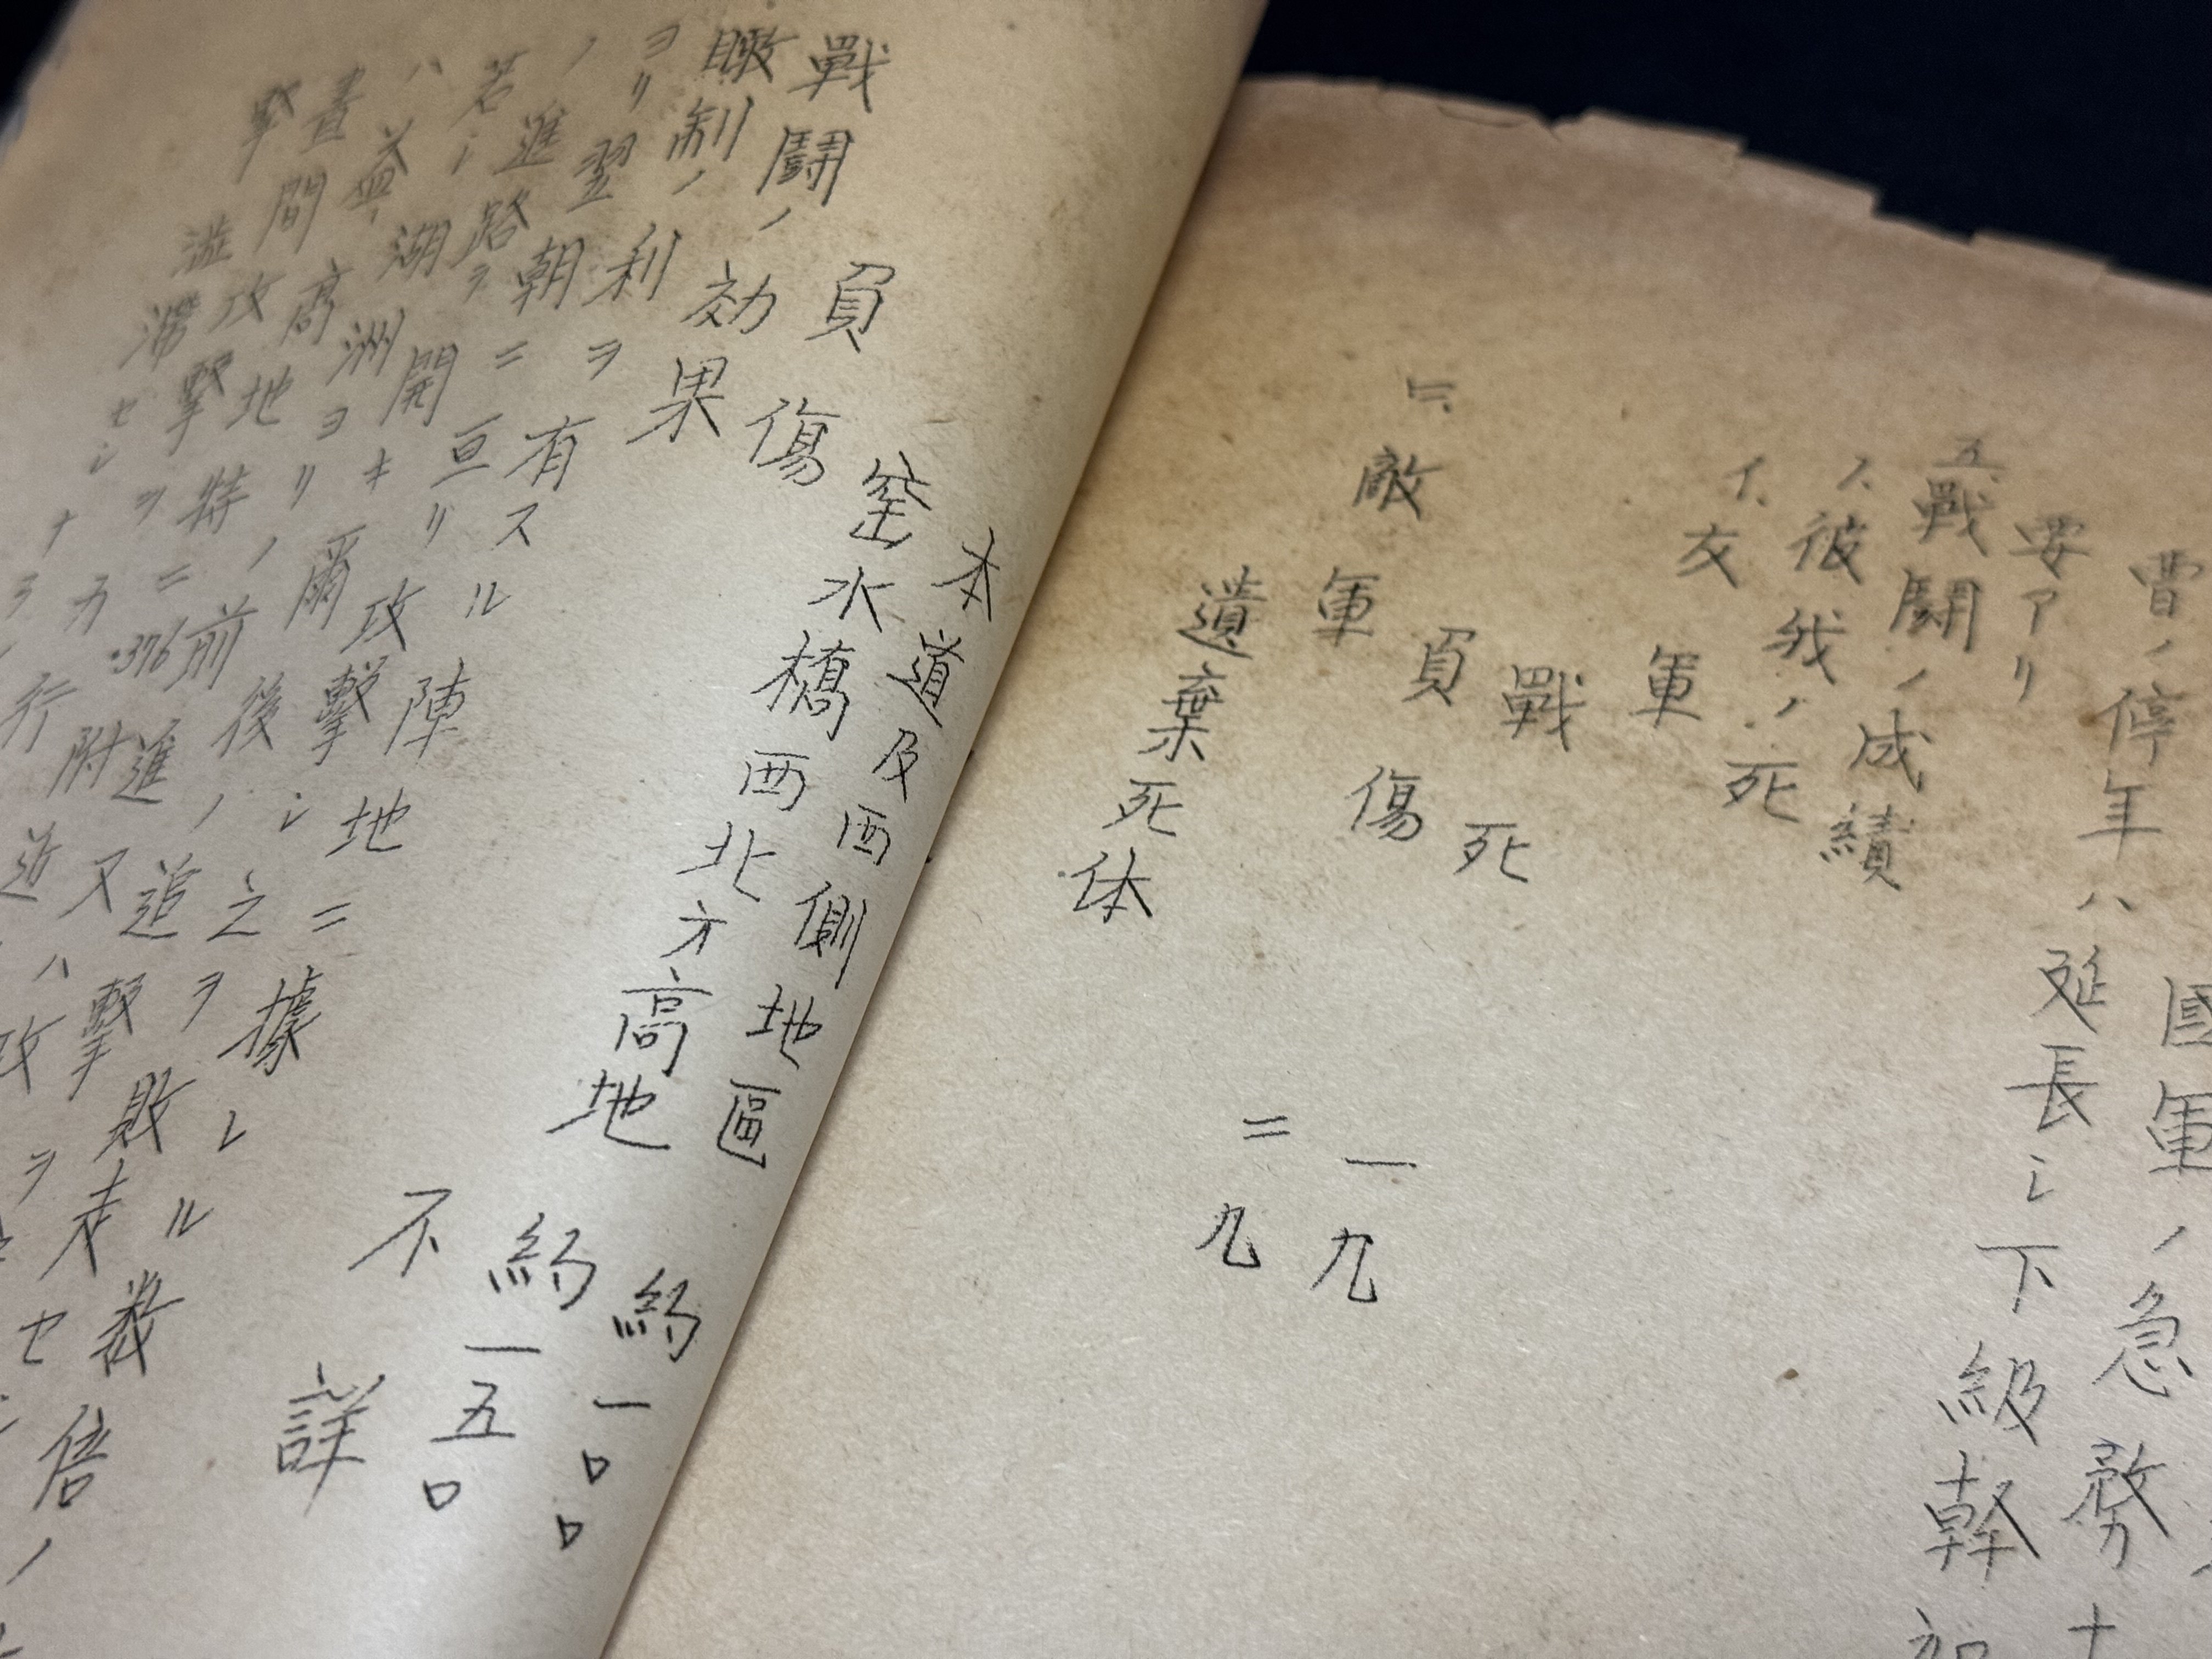 國軍ノ急務
曹ノ停年ハ延長シ下級幹
要アリ
五、戰鬪ノ成績
彼我ノ死
イ、友軍
戰死 一九
負傷 二九
敵軍
遺棄死体
本道及西側地區 約一〇〇
窑水橋西北方高地 約一五〇
負傷 不詳
戰鬪ノ効果
瞰制ノ利ヲ有スル陣地ニ據レル数倍ノ
ヨリ翌朝ニ亘リ攻撃シ之ヲ敗走セ
ノ進路ヲ開キ爾後ノ追撃ヲ
若シ湖洲ヨリノ前進又ハ攻
ハ高地特ニ376附近
晝間攻撃ヲ力行
撃澁滯セシナラ